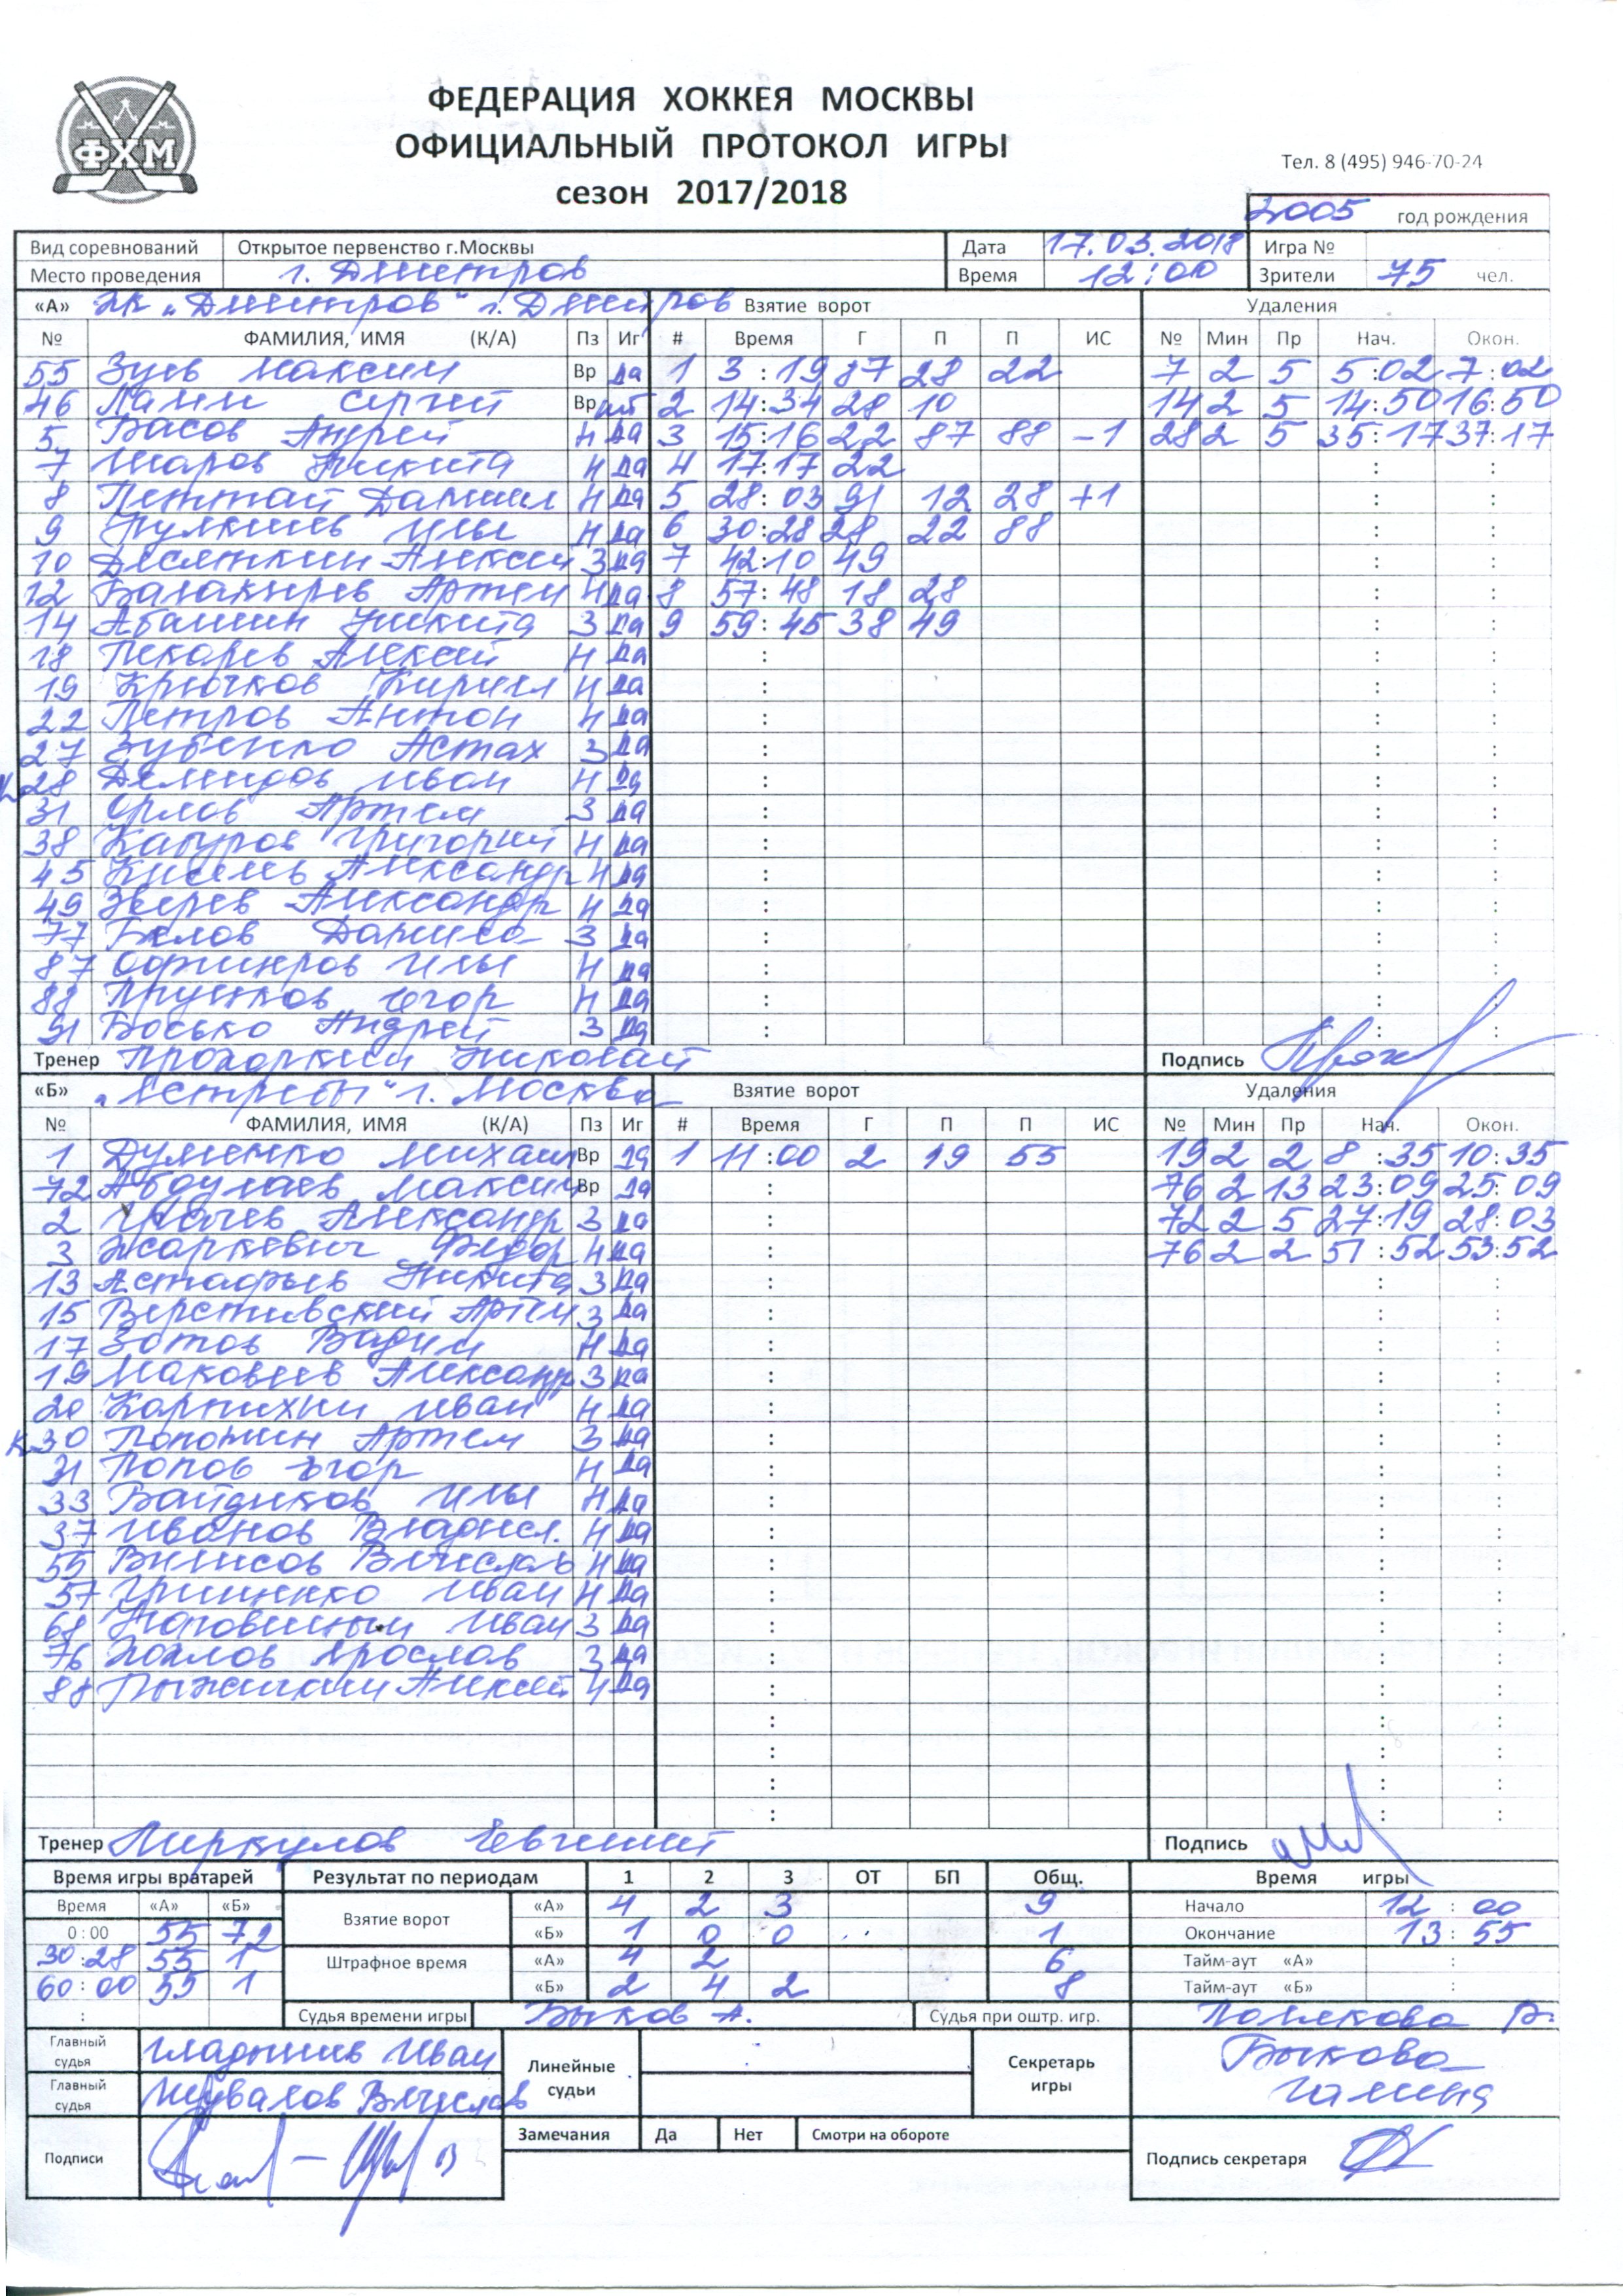 ФХМ
ФЕДЕРАЦИЯ ХОККЕЯ МОСКВЫ
ОФИЦИАЛЬНЫЙ ПРОТОКОЛ ИГРЫ
сезон 2017/2018
Тел. 8 (495) 946-70-24
2005 год рождения
Вид соревнований Открытое первенство г.Москвы Дата 17.03.2018 Игра №
Место проведения г. Дмитров Время 12:00 Зрители 75 чел.
«А» ХК "Дмитров" г. Дмитров Взятие ворот Удаления
№ ФАМИЛИЯ, ИМЯ (К/А) Пз Иг # Время Г П П ИС № Мин Пр Нач. Окон.
55 Зуев Максим Вр да 1 3:19 87 28 22 7 2 5 5:02 7:02
46 Сергей Вр 2 14:34 28 10 14 2 5 14:50 16:50
5 Басов Андрей Н да 3 15:16 22 87 88 -1 28 2 5 35:17 37:17
7 Шаров Никита Н да 4 17:17 22 :
8 Даниил Н да 5 28:03 91 12 28 +1
9 Илья Н да 6 30:28 28 22 88
10 Десяткин Алексей З да 7 42:10 49
12 Балакирев Артем Н да 8 57:48 18 28
14 Абашин Никита З да 9 59:45 38 49
18 Пекарев Алексей Н да
19 Крючков Кирилл Н да
22 Петров Антон Н да
27 Зубенко Астах З да
К 28 Демидов Иван Н да
31 Орлов Артем З да
38 Григорий Н да
45 Киселев Александр Н да
49 Зверев Александр Н да
77 Белов Данила З да
87 Илья Н да
88 Егор Н да
91 Босько Андрей З да
Тренер Прохоркин Николай Подпись
«Б» "Ястребы" г. Москва Взятие ворот Удаления
№ ФАМИЛИЯ, ИМЯ (К/А) Пз Иг # Время Г П П ИС № Мин Пр Нач. Окон.
1 Думенко Михаил Вр да 1 11:00 2 19 55 19 2 2 8:35 10:35
72 Абдулаев Максим Вр да 76 2 13 23:09 25:09
2 Александр З да 72 2 5 27:19 28:03
3 Жаркевич Федор Н да 76 2 2 51:52 53:52
13 Астафьев Никита З да
15 Верстивский Артем З да
17 Зотов Вадим Н да
19 Маковеев Александр З да
20 Карпихин Иван Н да
К 30 Попожин Артем З да
31 Попов Егор Н да
33 Вайдиков Илья Н да
37 Иванов Владисл. Н да
55 Вилисов Вячеслав Н да
57 Гриненко Иван Н да
68 Иван З да
76 Хохлов Ярослав З да
88 Алексей Н да
Тренер Пиркулов Евгений Подпись
Время игры вратарей Результат по периодам 1 2 3 ОТ БП Общ. Время игры
Время «А» «Б» Взятие ворот «А» 4 2 3 9 Начало 12:00
0:00 55 72 «Б» 1 0 0 1 Окончание 13:55
30:28 55 1 Штрафное время «А» 4 2 6 Тайм-аут «А» :
60:00 55 1 «Б» 2 4 2 8 Тайм-аут «Б» :
: Судья времени игры Быков А. Судья при оштр. игр. Полякова В.
Главный судья Гладышев Иван Линейные судьи Секретарь игры Быкова Галина
Главный судья Шувалов Вячеслав
Замечания Да Нет Смотри на обороте
Подписи Подпись секретаря